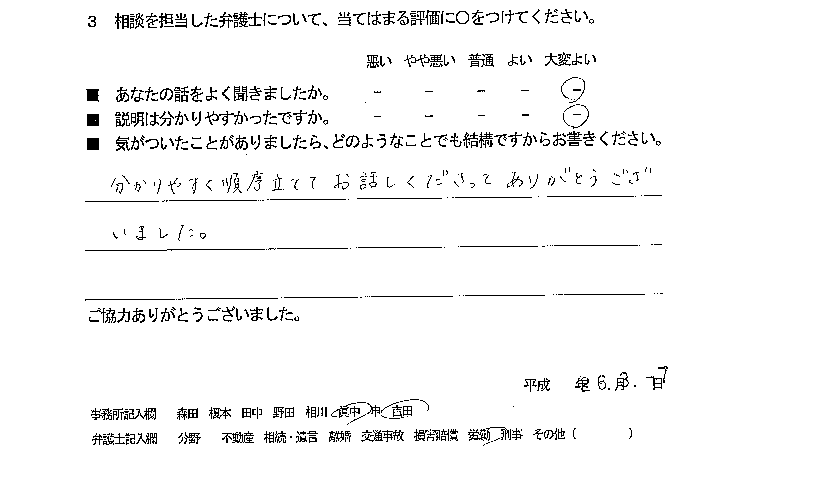 3 相談を担当した弁護士について、当てはまる評価に〇をつけてください。
悪い やや悪い 普通 よい 大変よい
■ あなたの話をよく聞きましたか。 − − − − −
■ 説明は分かりやすかったですか。 − − − − −
■ 気がついたことがありましたら、どのようなことでも結構ですからお書きください。
分かりやすく順序立てて お話しくださって ありがとうござ
いました。
ご協力ありがとうございました。
平成 6. 月 日
事務所記入欄 森田 榎本 田中 野田 相川 中 吉田
弁護士記入欄 分野 不動産 相続・遺言 離婚 交通事故 損害賠償 労働 刑事 その他 ( )